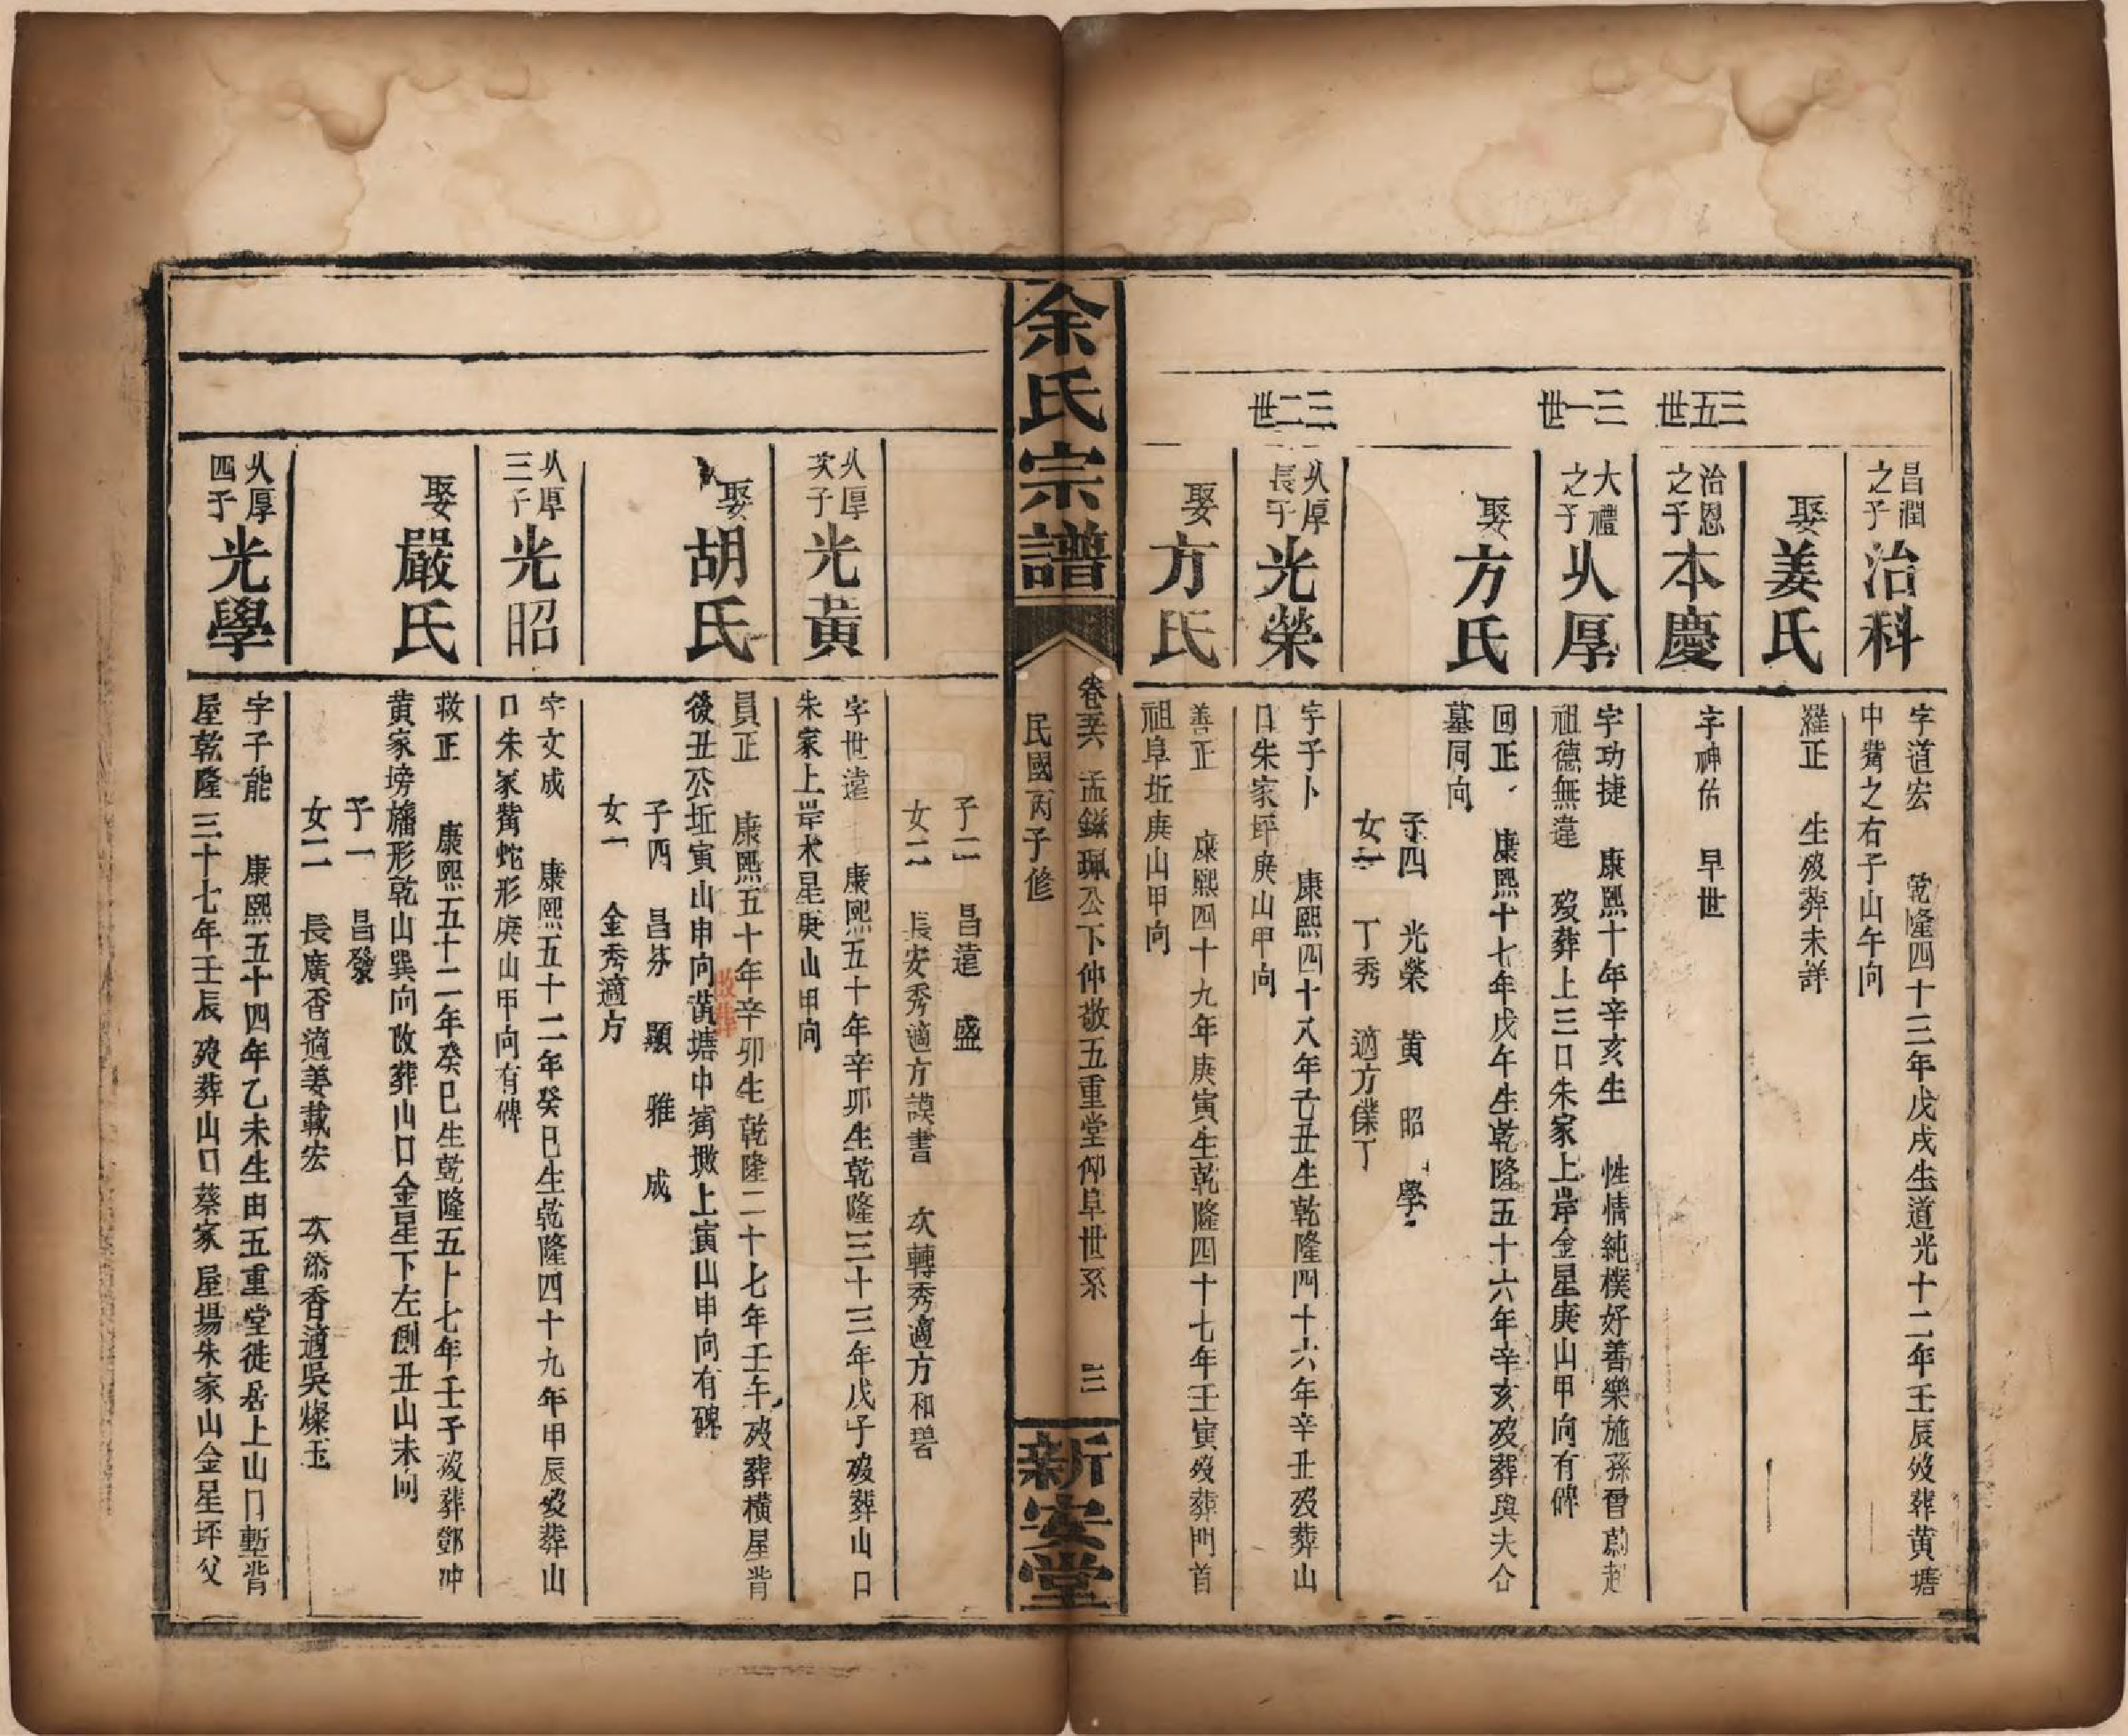 昌潤
之子
治科
字道宏 乾隆四十三年戊戌生道光十二年壬辰歿葬黃塘
中嘴之右子山午向
娶
姜氏
羅正 生歿葬未詳
三五世
治恩
之子
本慶
字神佑 早世
三一世
大禮
之子
从厚
字功捷 康熙十年辛亥生 性情純樸好善樂施孫曾蔚起
祖德無違 歿葬上三口朱家上岸金星庚山甲向有碑
娶
方氏
回正 康熙十七年戊午生乾隆五十六年辛亥歿葬與夫合
墓同向
子四 光榮 黃 昭 學
女一 丁秀 適方
三二世
从厚
長子
光榮
字子卜 康熙四十八年己丑生乾隆四十六年辛丑歿葬山
口朱家坪庚山甲向
娶
方氏
善正 康熙四十九年庚寅生乾隆四十七年壬寅歿葬門首
祖阜坵庚山甲向
余氏宗譜
卷 孟鎡珮公下仲敬五重堂仰阜世系 三
民國丙子修
新安堂
子二 昌遠 盛
女二 長安秀適方謨書 次轉秀適方和碧
从厚
次子
光黃
字世遠 康熙五十年辛卯生乾隆三十三年戊子歿葬山口
朱家上岸木星庚山甲向
娶
胡氏
員正 康熙五十年辛卯生乾隆二十七年壬午歿葬橫屋背
後丑公坵寅山申向 塘中 墩上寅山申向有碑
改葬
子四 昌芬 顯 雅 成
女一 金秀適方
从厚
三子
光昭
字文成 康熙五十二年癸巳生乾隆四十九年甲辰歿葬山
口朱家嘴蛇形庚山甲向有碑
娶
嚴氏
救正 康熙五十二年癸巳生乾隆五十七年壬子歿葬鄧冲
黃家塝旛形乾山巽向改葬山口金星下左側丑山未向
子一 昌發
女二 長廣香適姜載宏 次 香適吳燦玉
从厚
四子
光學
字子能 康熙五十四年乙未生由五重堂徙居上山口塹背
屋乾隆三十七年壬辰歿葬山口蔡家屋場朱家山金星坪父